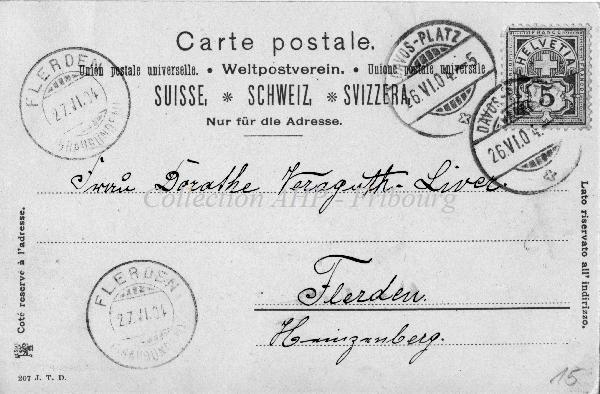 Carte postale.
Union postale universelle. • Weltpostverein. • Unione postale universale
SUISSE. * SCHWEIZ * SVIZZERA.
Nur für die Adresse.
FLERDEN
27.VI.04
(GRAUBÜNDEN)
DAVOS-PLATZ
26.VI.04.-5
FRANCO
HELVETIA
5
DAVOS-PLATZ
26.VI.04.-5
Frau Dorathe Versguth-Liver.
Collection AHP - Fribourg
Flerden.
Heinzenberg.
FLERDEN
27.VI.04
(GRAUBÜNDEN)
Coté reservé à l'adresse.
Lato riservato all' indirizzo.
207 J. T. D.
15